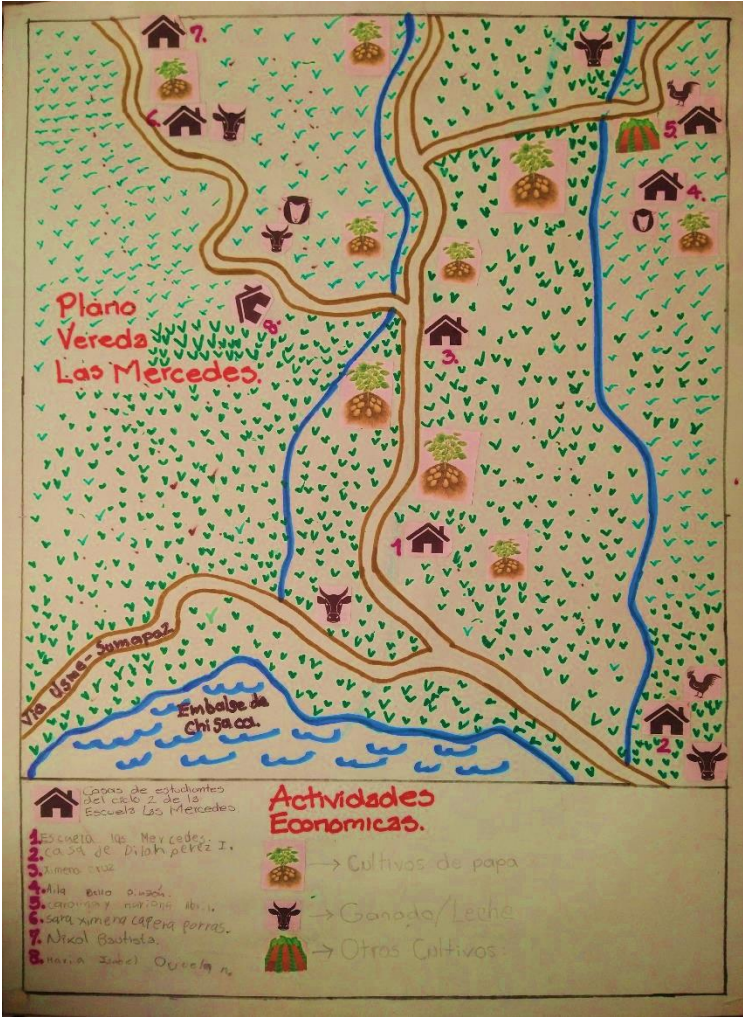 7.
6.
5.
4.
Plano
Vereda
Las Mercedes.
8.
3.
1
Vía Usme-Sumapaz
Embalse de
Chisaca.
2
Casas de estudiantes
del ciclo 2 de la
Escuela Las Mercedes
1. Escuela las Mercedes.
2. Casa de Dilan perez I.
3. Ximena cruz
4.
5. carolina y mariana
6. sara ximena capera porras.
7. Nixol Bautista.
8. maria
Actividades
Economicas.
→ Cultivos de papa
→ Ganado/Leche
→ Otros Cultivos.